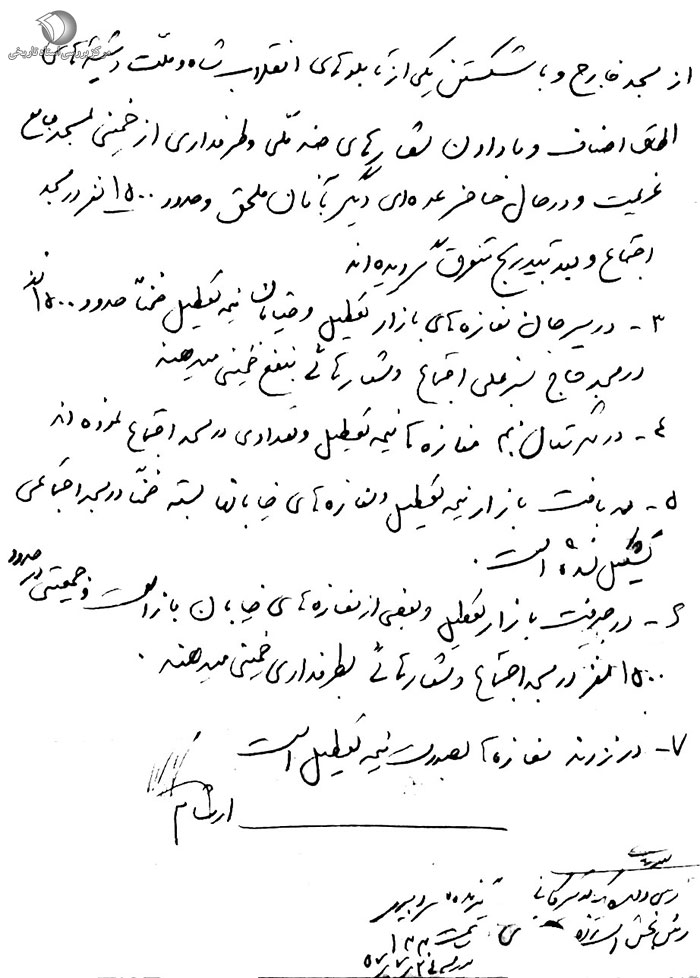 مرکز بررسی اسناد تاریخی
از مسجد خارج و با شکستن یکی از تابلوهای انقلاب شاه و ملت و شیشه های
اطاق اصناف و با دادن شعارهای ضد ملی و طرفداری از خمینی به مسجد جامع
عزیمت و در حال حاضر عده ای دیگر بآنان ملحق و حدود ۱۵۰۰ نفر در مسجد
اجتماع و بعد بتدریج متفرق گردیده اند
۳- در سیرجان مغازه های بازار تعطیل و خیابان نیمه تعطیل ضمناً حدود ۱۵۰۰ نفر
در مسجد حاج اجتماع و شعارهائی بنفع خمینی میدهند
۴- در بم مغازه ها نیمه تعطیل و تعدادی در مسجد اجتماع نموده اند
۵- در بافت بازار نیمه تعطیل و مغازه های خیابانها بسته ضمناً در مسجد اجتماعی
تشکیل نشده است.
۶- در جیرفت بازار تعطیل و بعضی از مغازه های خیابان باز است و جمعیتی در حدود
۱۵۰۰ نفر در مسجد اجتماع و شعارهائی بطرفداری خمینی میدهند.
۷- در زرند مغازه ها بصورت نیمه تعطیل است
ارشام
گیرنده
رئیس بخش